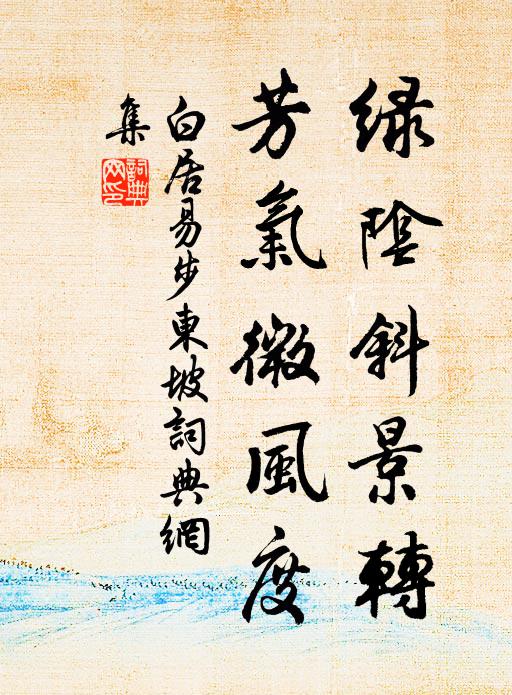 綠陰斜景轉
芳氣微風度
白居易步東坡詞典網
集
詞典
網印